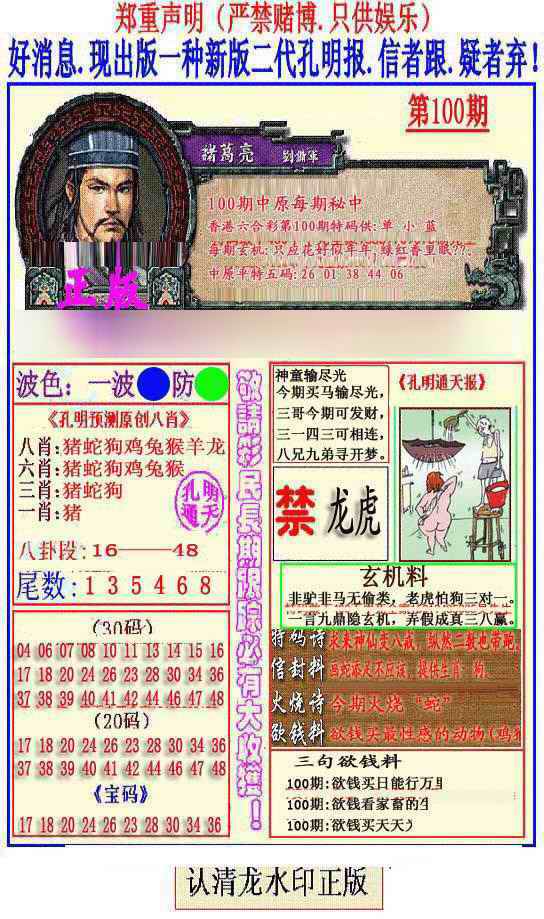 郑重声明（严禁赌博.只供娱乐）
好消息.现出版一种新版二代孔明报.信者跟.疑者弃！
第100期
諸葛亮 劉備軍
100期中原每期秘中
香港六合彩第100期特码供:单 小 蓝
每期玄机:只应花好似年年 绿红香里眠???
中原平特五码:26 01 38 44 06
正版
波色：一波 防
《孔明预测原创八肖》
八肖:猪蛇狗鸡兔猴羊龙
六肖:猪蛇狗鸡兔猴
三肖:猪蛇狗
一肖:猪
孔明
通天
八卦段:16——48
尾数:1 3 5 4 6 8
(30码)
04 06 07 08 10 11 13 14 15 16
17 18 20 24 26 23 28 30 34 36
37 38 39 40 41 42 44 46 47 48
(20码)
17 18 20 24 26 23 28 30 34 36
37 38 39 40 41 42 44 46 47 48
《宝码》
17 18 20 24 26 23 28 30 34 36
敬請彩民長期跟踪必有大收獲！
神童输尽光
今期买马输尽光，
三哥今期可发财，
三一四三可相连，
八兄九弟寻开梦。
《孔明通天报》
禁 龙虎
玄机料
非驴非马无偷类，老虎怕狗三对一。
一言九鼎隐玄机，弄假成真三八赢。
特码诗 求来神仙变八戒，纵然二数也带跑
信封料 画蛇添足不应该，提供生肖：狗
火烧诗 今期火烧“蛇”
欲钱料 欲钱买最性感的动物(鸡狗
三句欲钱料
100期:欲钱买日能行万里
100期:欲钱看家畜的
100期:欲钱买天天
认清龙水印正版